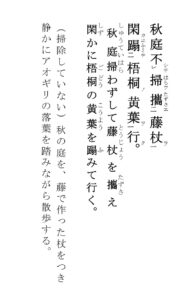 秋庭不掃攜藤杖
閑蹋梧桐黄葉行。
秋庭掃わずして藤杖を攜え
閑かに梧桐の黄葉を蹋みて行く。
（掃除していない）秋の庭を、藤で作った杖をつき
静かにアオギリの落葉を踏みながら散歩する。